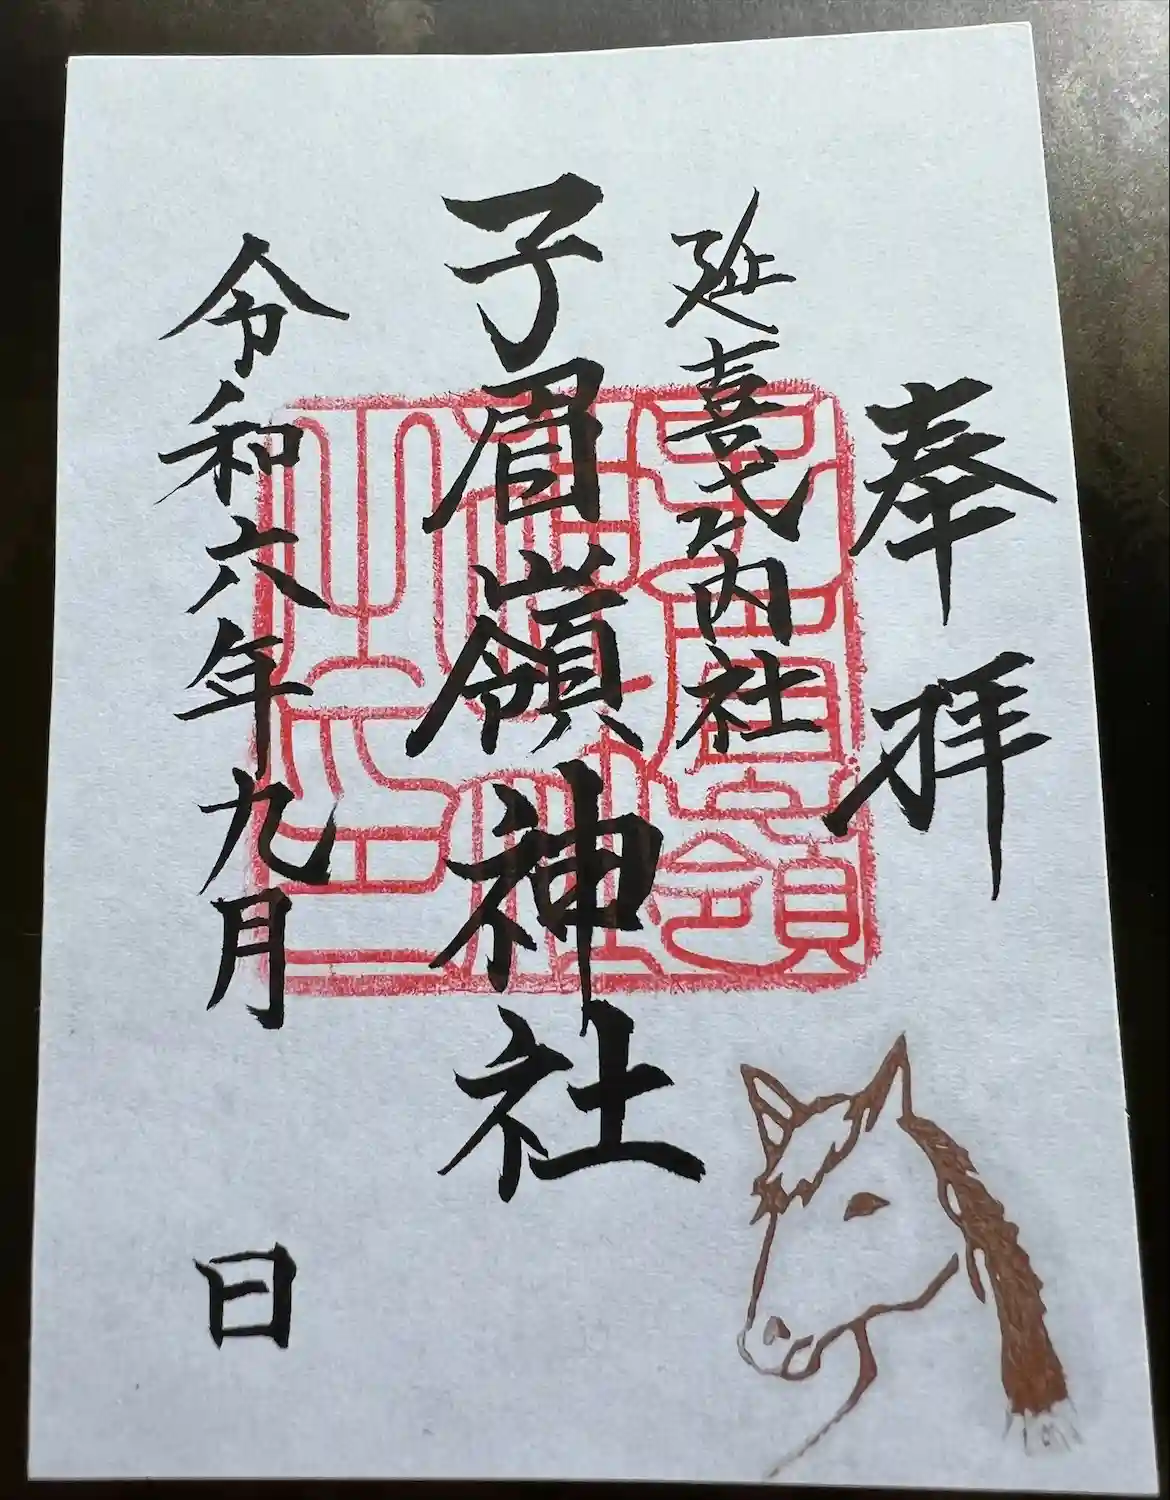 奉拝
延喜式内社
子眉嶺神社
令和六年九月 日
子眉嶺
神社
之印